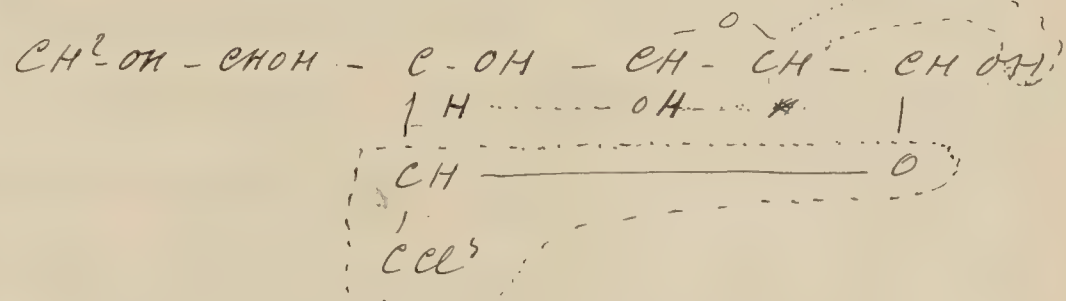 O
CH² OH - CHOH - C - OH - CH - CH - CH OH
H OH
CH O
CCl³